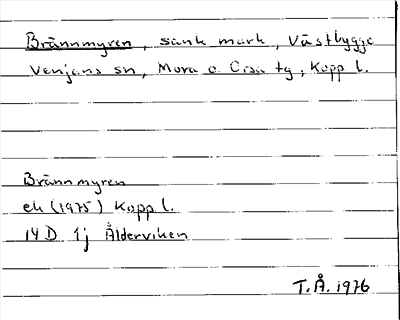 Brännmyren, sank mark, Västbygge
Venjans sn, Mora o. Orsa tg, Kopp l.
Brännmyren
ek (1975) Kopp l.
14 D 1j Ålderviken
T.Å. 1976